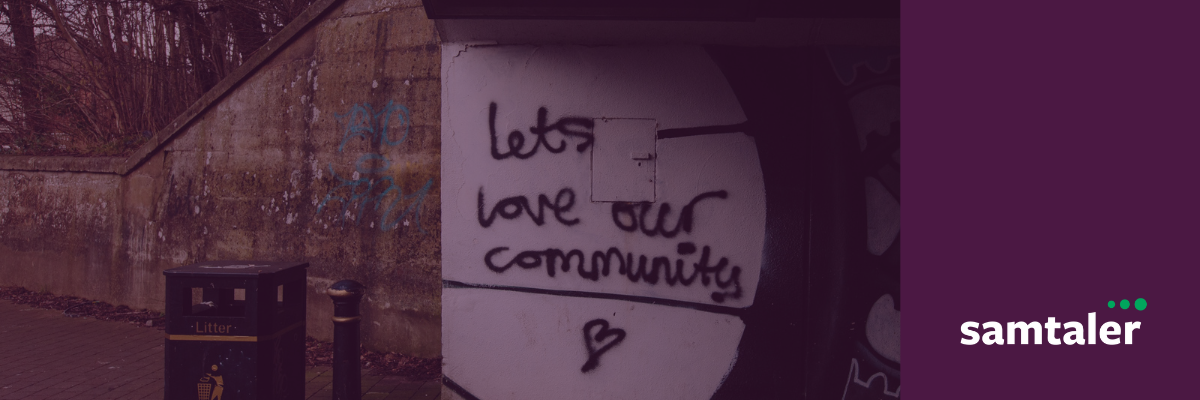 lets
love our
community
·Litter·
samtaler